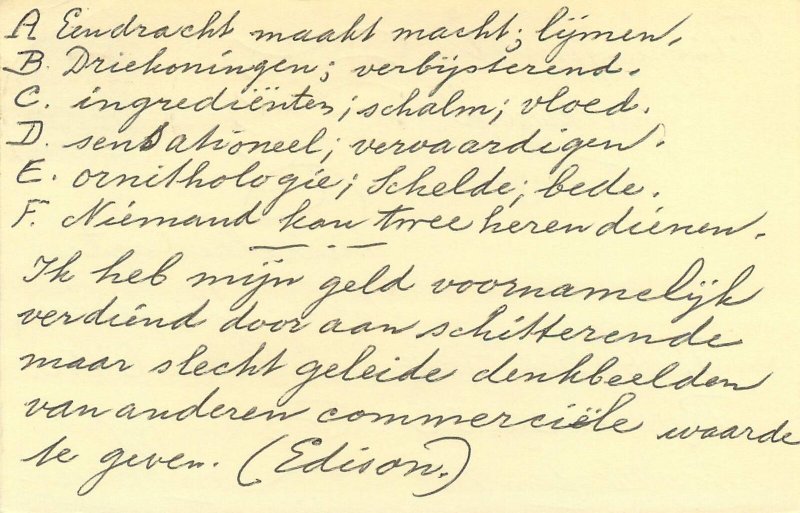 A Eendracht maakt macht; lijmen.
B. Driekoningen; verbijsterend.
C. ingrediënten; schalm; vloed.
D. sensationeel; vervaardigen.
E. ornithologie; Schelde; bede.
F. Niemand kan twee heren dienen.
Ik heb mijn geld voornamelijk
verdiend door aan schitterende
maar slecht geleide denkbeelden
van anderen commerciële waarde
te geven. (Edison.)